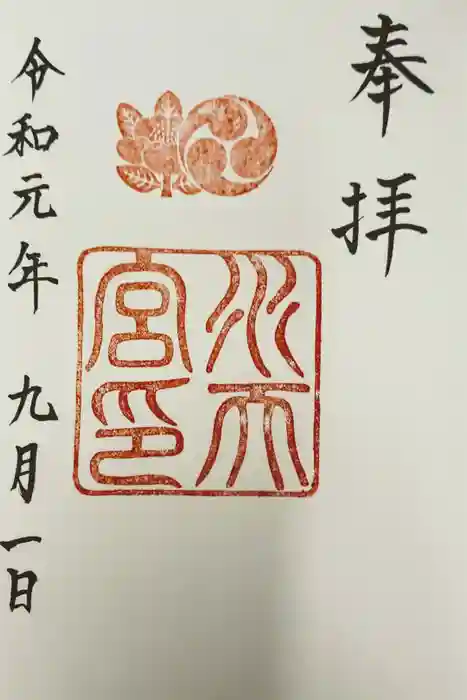 奉拝
水天
宮印
令和元年 九月一日